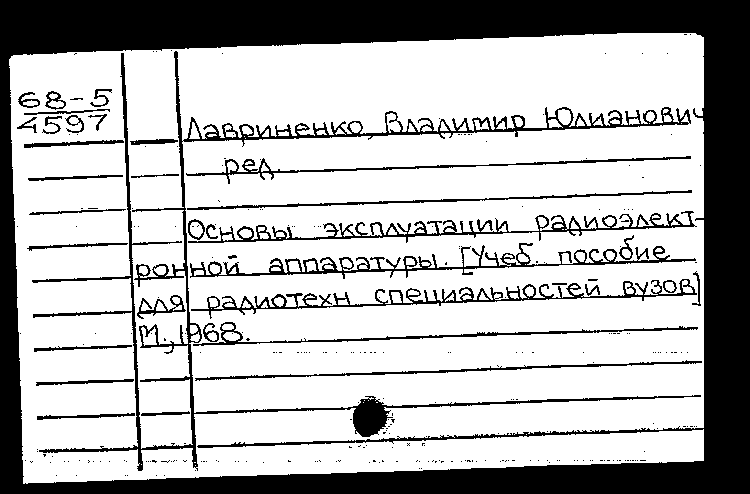 68-5
4597
Лавриненко, Владимир Юлианович
ред.
Основы эксплуатации радиоэлект-
ронной аппаратуры. [Учеб. пособие
для радиотехн специальностей вузов]
М., 1968.